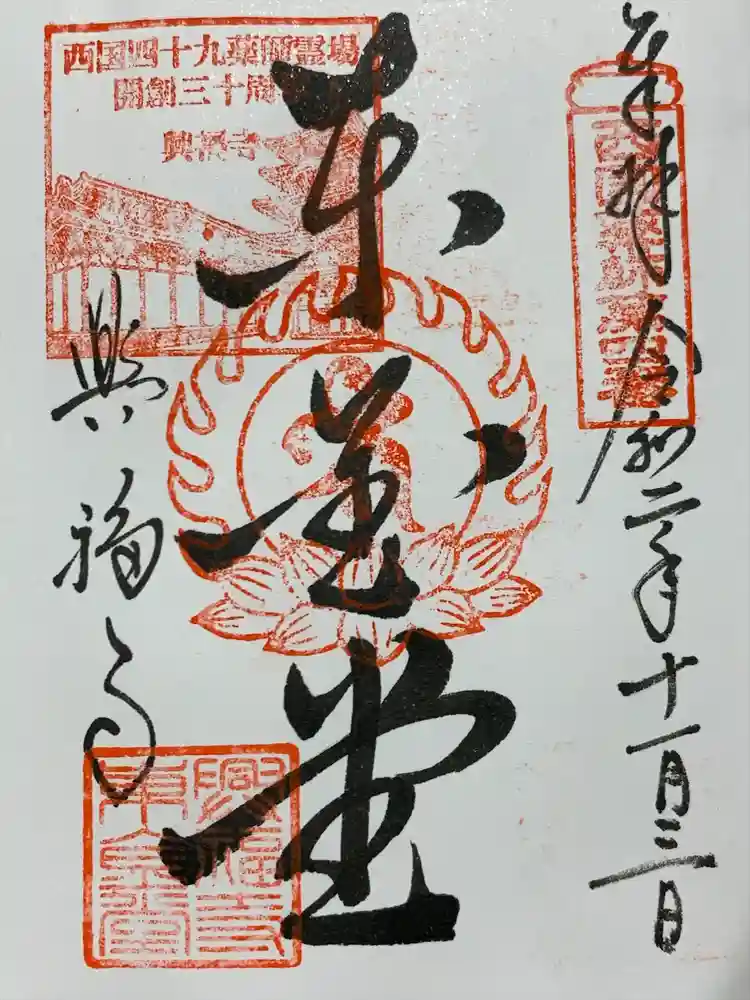 奉拝 令和二年十一月三日
東金堂
興福寺
西国四十九薬師霊場
開創三十周
興福寺
興福寺
東金堂